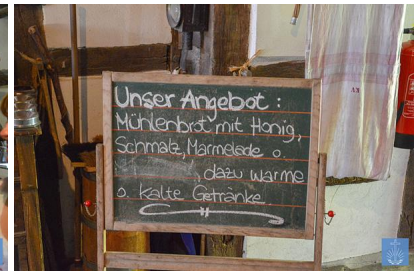 Unser Angebot:
Mühlenbrot mit Honig,
Schmalz, Marmelade o.
, dazu warme
o. kalte Getränke